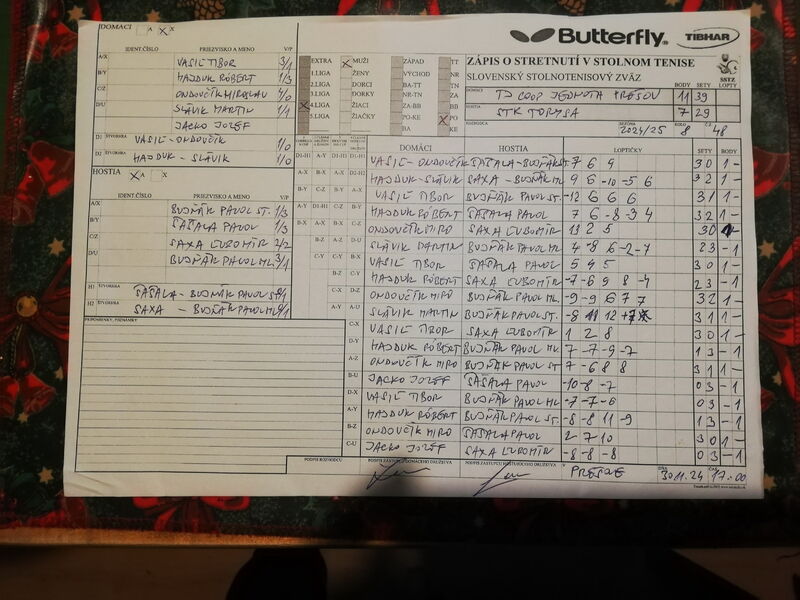 DOMÁCI A X
Butterfly TIBHAR
IDENT.ČÍSLO PRIEZVISKO A MENO V/P
ZÁPIS O STRETNUTÍ V STOLNOM TENISE
SLOVENSKÝ STOLNOTENISOVÝ ZVÄZ
SSTZ
EXTRA MUŽI ZÁPAD TT
1.LIGA ŽENY VÝCHOD NR
2.LIGA DORCI BA-TT TN
3.LIGA DORKY NR-TN ZA
4.LIGA ŽIACI ZA-BB BB
5.LIGA ŽIAČKY PO-KE PO
BA KE
A/X VASIL TIBOR 3/1
B/Y HAJDUK RÓBERT 1/3
C/Z ONDOVČÍK MIROSLAV 4/0
D/U SLÁVIK MARTIN 1/1
JACKO JOZEF
D1 ŠTVORHRA VASIL - ONDOVČÍK 1/0
D2 HAJDUK - SLÁVIK 1/0
DOMÁCI TJ COOP JEDNOTA PREŠOV BODY 11 SETY 39 LOPTY
HOSTIA STK TORYSA 7 29
ROZHODCA SEZÓNA 2024/25 KOLO 8 Č.Z. 48
HOSTIA X A
IDENT.ČÍSLO PRIEZVISKO A MENO V/P
A/X BUJŇÁK PAVOL ST. 1/3
B/Y ŠAŠALA PAVOL 1/3
C/Z SAXA ĽUBOMÍR 2/2
D/U BUJŇÁK PAVOL ML. 3/1
H1 ŠTVORHRA ŠAŠALA - BUJŇÁK PAVOL ST. 0/1
H2 SAXA - BUJŇÁK PAVOL ML. 0/1
PRIPOMIENKY, POZNÁMKY
DOMÁCI HOSTIA LOPTIČKY SETY BODY
VASIL - ONDOVČÍK ŠAŠALA - BUJŇÁK ST. 7 6 9 3 0 1 -
HAJDUK - SLÁVIK SAXA - BUJŇÁK ML. 9 6 -10 -5 6 3 2 1 -
VASIL TIBOR BUJŇÁK PAVOL ST. -12 6 6 6 3 1 1 -
HAJDUK RÓBERT ŠAŠALA PAVOL 7 6 -8 -3 4 3 2 1 -
ONDOVČÍK MIRO SAXA ĽUBOMÍR 13 2 5 3 0 1 -
SLÁVIK MARTIN BUJŇÁK PAVOL ML. 4 -8 6 -2 -7 2 3 - 1
VASIL TIBOR ŠAŠALA PAVOL 5 4 5 3 0 1 -
HAJDUK RÓBERT SAXA ĽUBOMÍR -7 -6 9 8 -4 2 3 - 1
ONDOVČÍK MIRO BUJŇÁK PAVOL ML. -9 -9 6 7 7 3 2 1 -
SLÁVIK MARTIN BUJŇÁK PAVOL ST. -8 11 12 3 1 1 -
VASIL TIBOR SAXA ĽUBOMÍR 1 2 8 3 0 1 -
HAJDUK RÓBERT BUJŇÁK PAVOL ML. 7 -7 -9 -7 1 3 - 1
ONDOVČÍK MIRO BUJŇÁK PAVOL ST. 7 -6 8 8 3 1 1 -
JACKO JOZEF ŠAŠALA PAVOL -10 -8 -7 0 3 - 1
VASIL TIBOR BUJŇÁK PAVOL ML. -7 -7 -6 0 3 - 1
HAJDUK RÓBERT BUJŇÁK PAVOL ST. -8 -8 11 -9 1 3 - 1
ONDOVČÍK MIRO ŠAŠALA PAVOL 2 7 10 3 0 1 -
JACKO JOZEF SAXA ĽUBOMÍR -8 -8 -8 0 3 - 1
PODPIS ROZHODCU PODPIS ZÁSTUPCU DOMÁCEHO DRUŽSTVA PODPIS ZÁSTUPCU HOSŤUJÚCEHO DRUŽSTVA V PREŠOVE DŇA 30.11.24 ČAS 17:00